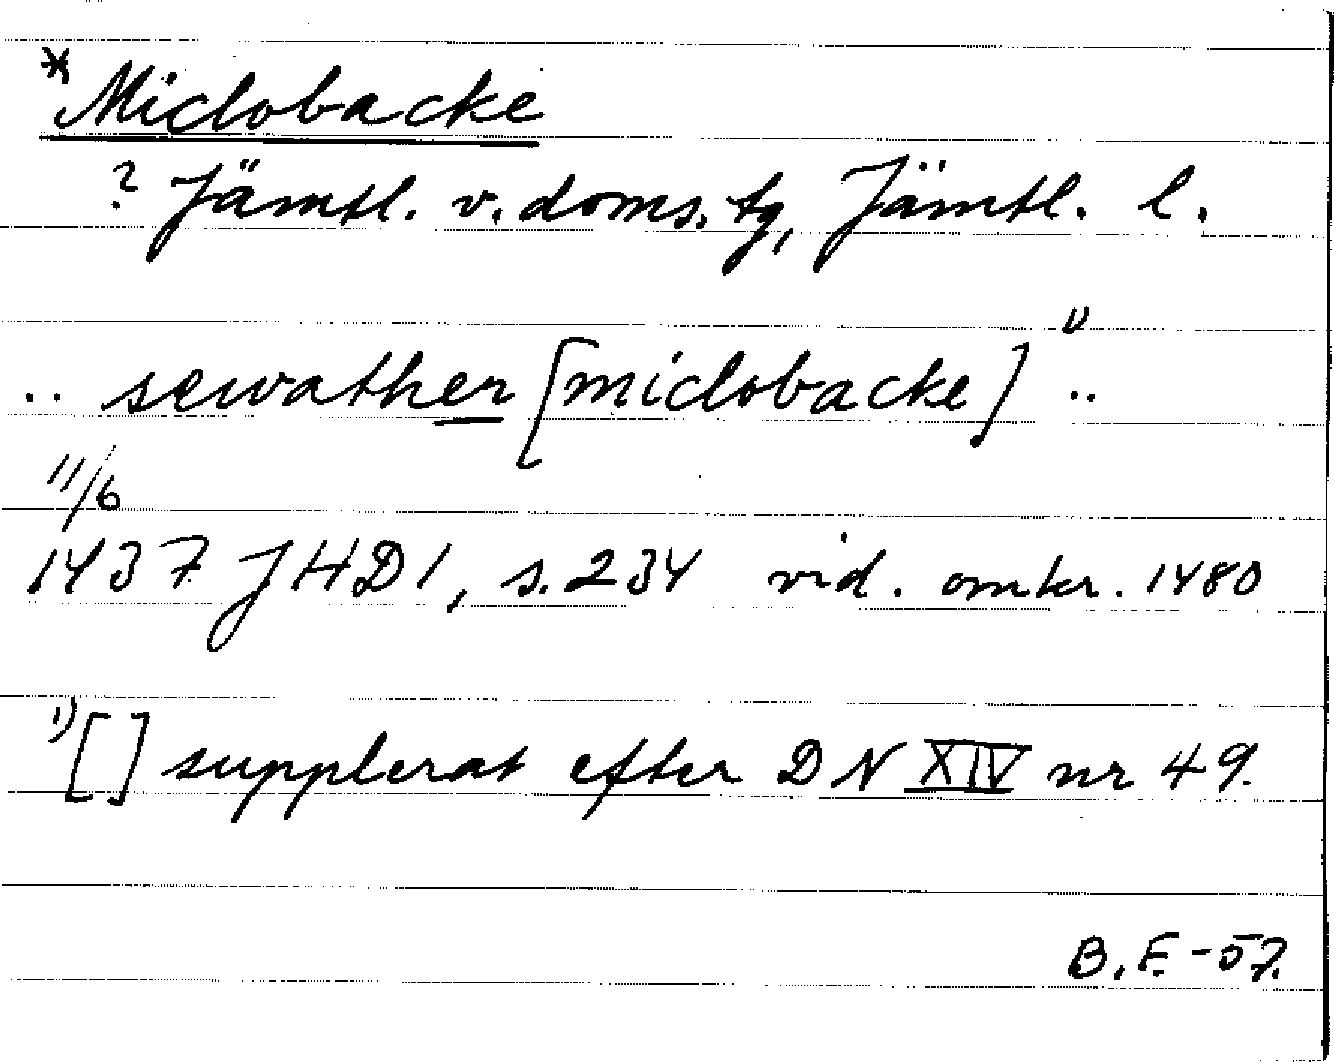 *Miclobacke
? Jämtl. v. doms. tg, Jämtl. l.
.. sewather [miclobacke] 1) ..
11/6
1437 JHD 1, s. 234 vid. omkr. 1480
1) [ ] supplerat efter DN XIV nr 49.
B.E. -57.